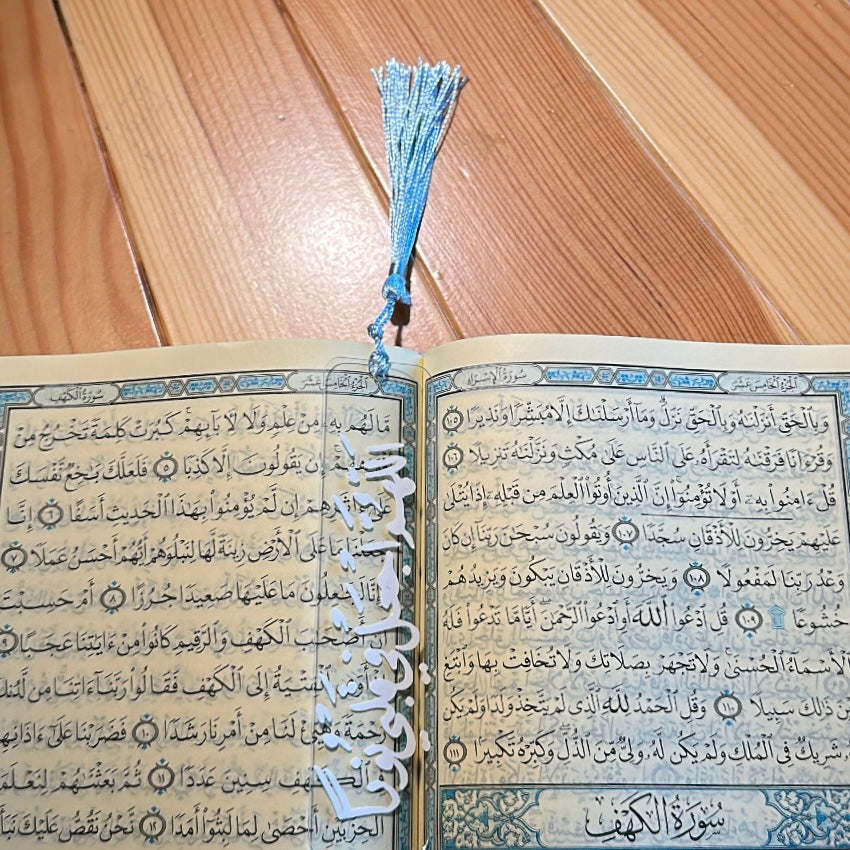 الجُزْءُ الخَامِسَ عَشَرَ
سُورَةُ الإِسْرَاءِ
وَبِٱلْحَقِّ أَنزَلْنَٰهُ وَبِٱلْحَقِّ نَزَلَ ۗ وَمَآ أَرْسَلْنَٰكَ إِلَّا مُبَشِّرًا وَنَذِيرًا ١٠٥
وَقُرْءَانًا فَرَقْنَٰهُ لِتَقْرَأَهُۥ عَلَى ٱلنَّاسِ عَلَىٰ مُكْثٍ وَنَزَّلْنَٰهُ تَنزِيلًا ١٠٦
قُلْ ءَامِنُوا۟ بِهِۦٓ أَوْ لَا تُؤْمِنُوٓا۟ ۚ إِنَّ ٱلَّذِينَ أُوتُوا۟ ٱلْعِلْمَ مِن قَبْلِهِۦٓ إِذَا يُتْلَىٰ
عَلَيْهِمْ يَخِرُّونَ لِلْأَذْقَانِ سُجَّدًا ١٠٧ وَيَقُولُونَ سُبْحَٰنَ رَبِّنَآ إِن كَانَ
وَعْدُ رَبِّنَا لَمَفْعُولًا ١٠٨ وَيَخِرُّونَ لِلْأَذْقَانِ يَبْكُونَ وَيَزِيدُهُمْ
خُشُوعًا ۩ ١٠٩ قُلِ ٱدْعُوا۟ ٱللَّهَ أَوِ ٱدْعُوا۟ ٱلرَّحْمَٰنَ ۖ أَيًّا مَّا تَدْعُوا۟ فَلَهُ
ٱلْأَسْمَآءُ ٱلْحُسْنَىٰ ۚ وَلَا تَجْهَرْ بِصَلَاتِكَ وَلَا تُخَافِتْ بِهَا وَٱبْتَغِ
بَيْنَ ذَٰلِكَ سَبِيلًا ١١٠ وَقُلِ ٱلْحَمْدُ لِلَّهِ ٱلَّذِى لَمْ يَتَّخِذْ وَلَدًا وَلَمْ يَكُن
لَّهُۥ شَرِيكٌ فِى ٱلْمُلْكِ وَلَمْ يَكُن لَّهُۥ وَلِىٌّ مِّنَ ٱلذُّلِّ ۖ وَكَبِّرْهُ تَكْبِيرًۢا ١١١
سُورَةُ الكَهْفِ
الجُزْءُ الخَامِسَ عَشَرَ
سُورَةُ الكَهْفِ
مَّا لَهُم بِهِۦ مِنْ عِلْمٍ وَلَا لِءَابَآئِهِمْ ۚ كَبُرَتْ كَلِمَةً تَخْرُجُ مِنْ
أَفْوَٰهِهِمْ ۚ إِن يَقُولُونَ إِلَّا كَذِبًا ٥ فَلَعَلَّكَ بَٰخِعٌ نَّفْسَكَ
عَلَىٰٓ ءَاثَٰرِهِمْ إِن لَّمْ يُؤْمِنُوا۟ بِهَٰذَا ٱلْحَدِيثِ أَسَفًا ٦ إِنَّا
جَعَلْنَا مَا عَلَى ٱلْأَرْضِ زِينَةً لَّهَا لِنَبْلُوَهُمْ أَيُّهُمْ أَحْسَنُ عَمَلًا ٧
وَإِنَّا لَجَٰعِلُونَ مَا عَلَيْهَا صَعِيدًا جُرُزًا ٨ أَمْ حَسِبْتَ
أَنَّ أَصْحَٰبَ ٱلْكَهْفِ وَٱلرَّقِيمِ كَانُوا۟ مِنْ ءَايَٰتِنَا عَجَبًا ٩
إِذْ أَوَى ٱلْفِتْيَةُ إِلَى ٱلْكَهْفِ فَقَالُوا۟ رَبَّنَآ ءَاتِنَا مِن لَّدُنكَ
رَحْمَةً وَهَيِّئْ لَنَا مِنْ أَمْرِنَا رَشَدًا ١٠ فَضَرَبْنَا عَلَىٰٓ ءَاذَانِهِمْ
فِى ٱلْكَهْفِ سِنِينَ عَدَدًا ١١ ثُمَّ بَعَثْنَٰهُمْ لِنَعْلَمَ
ٱلْحِزْبَيْنِ أَحْصَىٰ لِمَا لَبِثُوٓا۟ أَمَدًا ١٢ نَّحْنُ نَقُصُّ عَلَيْكَ نَبَأَ
اللَّهُمَّ اجْعَلْ فِي قَلْبِي نُورًا